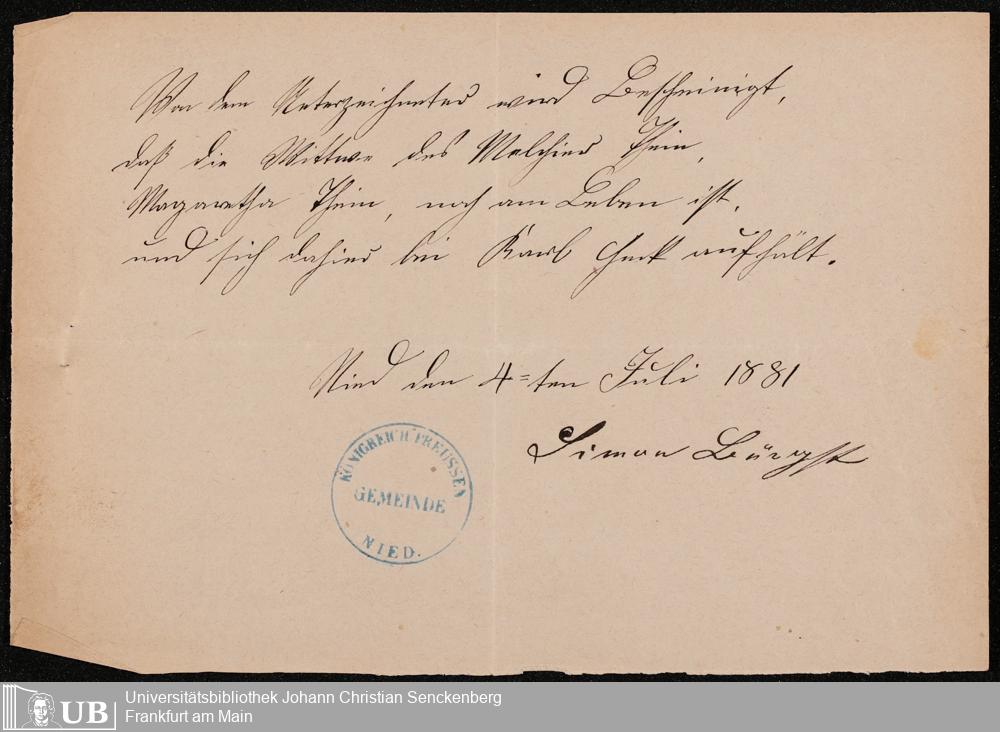 Von dem Unterzeichneter wird Bescheinigt,
daß die Wittwe des Melchior Thein,
Magaretha Thein, noch am Leben ist,
und sich dahier bei Karl aufhält.
Nied den 4=ten Juli 1881
Simon Bürgst
KÖNIGREICH PREUSSEN
GEMEINDE
NIED.
UB
Universitätsbibliothek Johann Christian Senckenberg
Frankfurt am Main